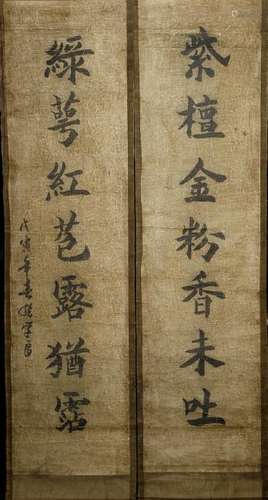 紫檀金粉香未吐
綠萼紅苞露猶霑
戊寅年春